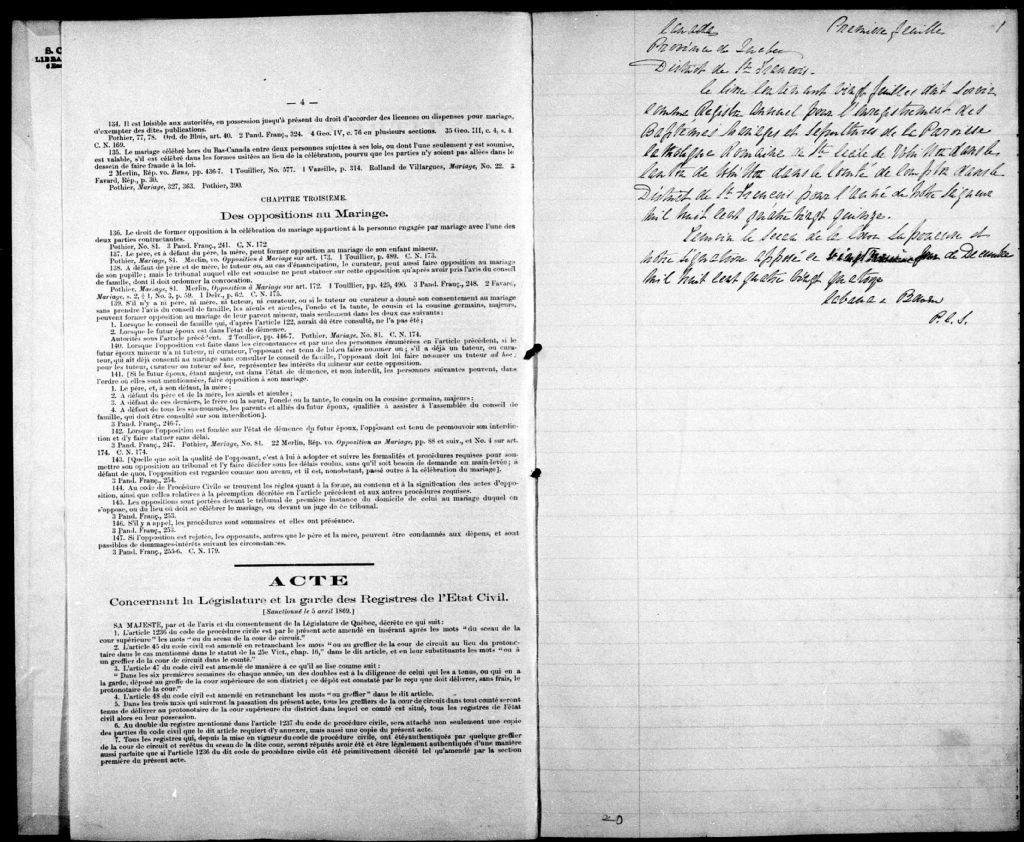 S. C
LIBRA
— 4 —
134. Il est loisible aux autorités, en possession jusqu'à présent du droit d'accorder des licences ou dispenses pour mariage,
d'exempter des dites publications.
Pothier, 77, 78. Ord. de Blois, art. 40. 2 Pand. Franç., 324. 4 Geo. IV, c. 76 en plusieurs sections. 35 Geo. III, c. 4, s. 4.
C. N. 169.
135. Le mariage célébré hors du Bas-Canada entre deux personnes sujettes à ses lois, ou dont l'une seulement y est soumise,
est valable, s'il est célébré dans les formes usitées au lieu de la célébration, pourvu que les parties n'y soient pas allées dans le
dessein de faire fraude à la loi.
2 Merlin, Rép. vo. Bans, pp. 436-7. 1 Touillier, No. 577. 1 Vazeille, p. 314. Rolland de Villargues, Mariage, No. 22. 3
Favard, Rép., p. 30.
Pothier, Mariage, 327, 363. Pothier, 390.
CHAPITRE TROISIÈME.
Des oppositions au Mariage.
136. Le droit de former opposition à la célébration du mariage appartient à la personne engagée par mariage avec l'une des
deux parties contractantes.
Pothier, No. 81. 3 Pand. Franç., 241. C. N. 172
137. Le père, et à défaut du père, la mère, peut former opposition au mariage de son enfant mineur.
Pothier, Mariage, 81. Merlin, vo. Opposition à Mariage sur art. 173. 1 Touillier, p. 489. C. N. 173.
138. A défaut de père et de mère, le tuteur ou, au cas d'émancipation, le curateur, peut aussi faire opposition au mariage
de son pupille; mais le tribunal auquel elle est soumise ne peut statuer sur cette opposition qu'après avoir pris l'avis du conseil
de famille, dont il doit ordonner la convocation.
Pothier, Mariage, 81. Merlin, Opposition à Mariage sur art. 172. 1 Touillier, pp. 425, 490. 3 Pand. Franç., 248. 2 Favard,
Mariage, s. 2, § 1, No. 3, p. 59. 1 Delv., p. 62. C. N. 175.
139. S'il n'y a ni père, ni mère, ni tuteur, ni curateur, ou si le tuteur ou curateur a donné son consentement au mariage
sans prendre l'avis du conseil de famille, les aïeuls et aïeules, l'oncle et la tante, le cousin et la cousine germains, majeurs,
peuvent former opposition au mariage de leur parent mineur, mais seulement dans les deux cas suivants:
1. Lorsque le conseil de famille qui, d'après l'article 122, aurait dû être consulté, ne l'a pas été;
2. Lorsque le futur époux est dans l'état de démence.
Autorités sous l'article précédent. 2 Touillier, pp. 446-7. Pothier, Mariage, No. 81. C. N. 174.
140. Lorsque l'opposition est faite dans les circonstances et par une des personnes énumérées en l'article précédent, si le
futur époux mineur n'a ni tuteur, ni curateur, l'opposant est tenu de lui en faire nommer un; s'il a déjà un tuteur, ou cura-
teur, qui ait déjà consenti au mariage sans consulter le conseil de famille, l'opposant doit lui faire nommer un tuteur ad hoc;
pour les tuteur, curateur ou tuteur ad hoc, représenter les intérêts du mineur sur cette opposition.
141. [Si le futur époux, étant majeur, est dans l'état de démence, et non interdit, les personnes suivantes peuvent, dans
l'ordre où elles sont mentionnées, faire opposition à son mariage.
1. Le père, et, à son défaut, la mère;
2. A défaut du père et de la mère, les aïeuls et aïeules;
3. A défaut de ces derniers, le frère ou la sœur, l'oncle ou la tante, le cousin ou la cousine germains, majeurs;
4. A défaut de tous les sus-nommés, les parents et alliés du futur époux, qualifiés à assister à l'assemblée du conseil de
famille, qui doit être consulté sur son interdiction].
3 Pand. Franç., 246-7.
142. Lorsque l'opposition est fondée sur l'état de démence du futur époux, l'opposant est tenu de promouvoir son interdic-
tion et d'y faire statuer sans délai.
3 Pand. Franç., 247. Pothier, Mariage, No. 81. 22 Merlin, Rép. vo. Opposition au Mariage, pp. 88 et suiv., et No. 4 sur art.
174. C. N. 174.
143. [Quelque que soit la qualité de l'opposant, c'est à lui à adopter et suivre les formalités et procédures requises pour sou-
mettre son opposition au tribunal et l'y faire décider sous les délais voulus, sans qu'il soit besoin de demande en main-levée; à
défaut de quoi, l'opposition est regardée comme non avenu, et il est, nonobstant, passé outre à la célébration du mariage].
3 Pand. Franç., 254.
144. Au code de Procédure Civile se trouvent les règles quant à la forme, au contenu et à la signification des actes d'oppo-
sition, ainsi que celles relatives à la péremption décrétée en l'article précédent et aux autres procédures requises.
145. Les oppositions sont portées devant le tribunal de première instance du domicile de celui au mariage duquel on
s'oppose, ou du lieu où doit se célébrer le mariage, ou devant un juge de ce tribunal.
3 Pand. Franç., 253.
146. S'il y a appel, les procédures sont sommaires et elles ont préséance.
3 Pand. Franç., 253.
147. Si l'opposition est rejetée, les opposants, autres que le père et la mère, peuvent être condamnés aux dépens, et sont
passibles de dommages-intérêts suivant les circonstances.
3 Pand. Franç., 255-6. C. N. 179.
ACTE
Concernant la Législature et la garde des Registres de l'Etat Civil.
[Sanctionné le 5 avril 1869.]
SA MAJESTE, par et de l'avis et du consentement de la Législature de Québec, décrète ce qui suit:
1. L'article 1236 du code de procédure civile est par le présent acte amendé en insérant après les mots "du sceau de la
cour supérieure" les mots "ou du sceau de la cour de circuit."
2. L'article 45 du code civil est amendé en retranchant les mots "ou au greffier de la cour de circuit au lieu du protono-
taire dans le cas mentionné dans le statut de la 25e Vict., chap. 16," dans le dit article, et en leur substituants les mots "ou à
un greffier de la cour de circuit dans le comté."
3. L'article 47 du code civil est amendé de manière à ce qu'il se lise comme suit:
"Dans les six premières semaines de chaque année, un des doubles est à la diligence de celui qui les a tenus, ou qui en a
la garde, déposé au greffe de la cour supérieure de son district; ce dépôt est constaté par le reçu que doit délivrer, sans frais, le
protonotaire de la cour."
4. L'article 48 du code civil est amendé en retranchant les mots "ou greffier" dans le dit article.
5. Dans les trois mois qui suivront la passation du présent acte, tous les greffiers de la cour de circuit dans tout comté seront
tenus de délivrer au protonotaire de la cour supérieure du district dans lequel ce comté est situé, tous les registres de l'état
civil alors en leur possession.
6. Au double du registre mentionné dans l'article 1237 du code de procédure civile, sera attaché non seulement une copie
des parties du code civil que le dit article requiert d'y annexer, mais aussi une copie du présent acte.
7. Tous les registres qui, depuis la mise en vigueur du code de procédure civile, ont été authentiqués par quelque greffier
de la cour de circuit et revêtus du sceau de la dite cour, seront réputés avoir été et être légalement authentiqués d'une manière
aussi parfaite que si l'article 1236 du dit code de procédure civile eût été primitivement décrété tel qu'amendé par la section
première du présent acte.
Canada Première feuille 1
Province de Quebec
District de St François.
Le livre contenant vingt feuilles doit servir
comme Registre annuel pour l'enregistrement des
Baptêmes Mariages et Sépultures de la Paroisse
Catholique Romaine de Ste Cécile de Whitton dans le
Canton de Whitton dans le Comté de Compton dans le
District de St François pour l'année de Notre Seigneur
mil huit cent quatre vingt quinze.
Témoin le sceau de la Cour Supérieure et
notre signature apposé ce de Decembre
mil huit cent quatre vingt quatorze
Cabana &
P.C.S.
20